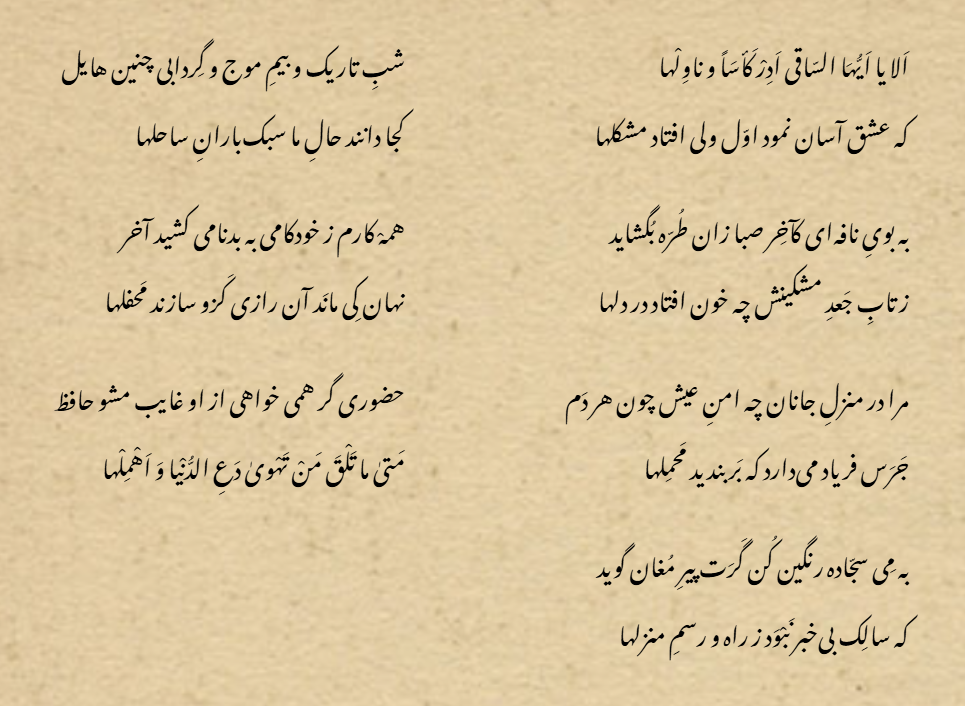 اَلا یا اَیُّهَا السّاقی اَدِرْ کَأسَاً و ناوِلْها
که عشق آسان نمود اوّل ولی افتاد مشکلها
به بویِ نافه‌ای کآخِر صبا زان طُرّه بُگشاید
ز تابِ جَعدِ مشکینش چه خون افتاد در دلها
مرا در منزلِ جانان چه امنِ عیش چون هر دَم
جَرَس فریاد می‌دارد که بَربندید مَحمِلها
به مِی سجّاده رنگین کُن گَرَت پیرِ مُغان گوید
که سالِک بی‌خبر نَبْوَد ز راه و رسمِ منزلها
شبِ تاریک و بیمِ موج و گِردابی چنین هایل
کجا دانند حالِ ما سبک‌بارانِ ساحلها
همهٔ کارم ز خودکامی به بدنامی کشید آخر
نهان کِی مانَد آن رازی کَزو سازند مَحفلها
حضوری گر همی خواهی از او غایب مشو حافظ
مَتیٰ ما تَلْقَ مَنْ تَهْویٰ دَعِ الدُّنْیا وَ اَهْمِلْها